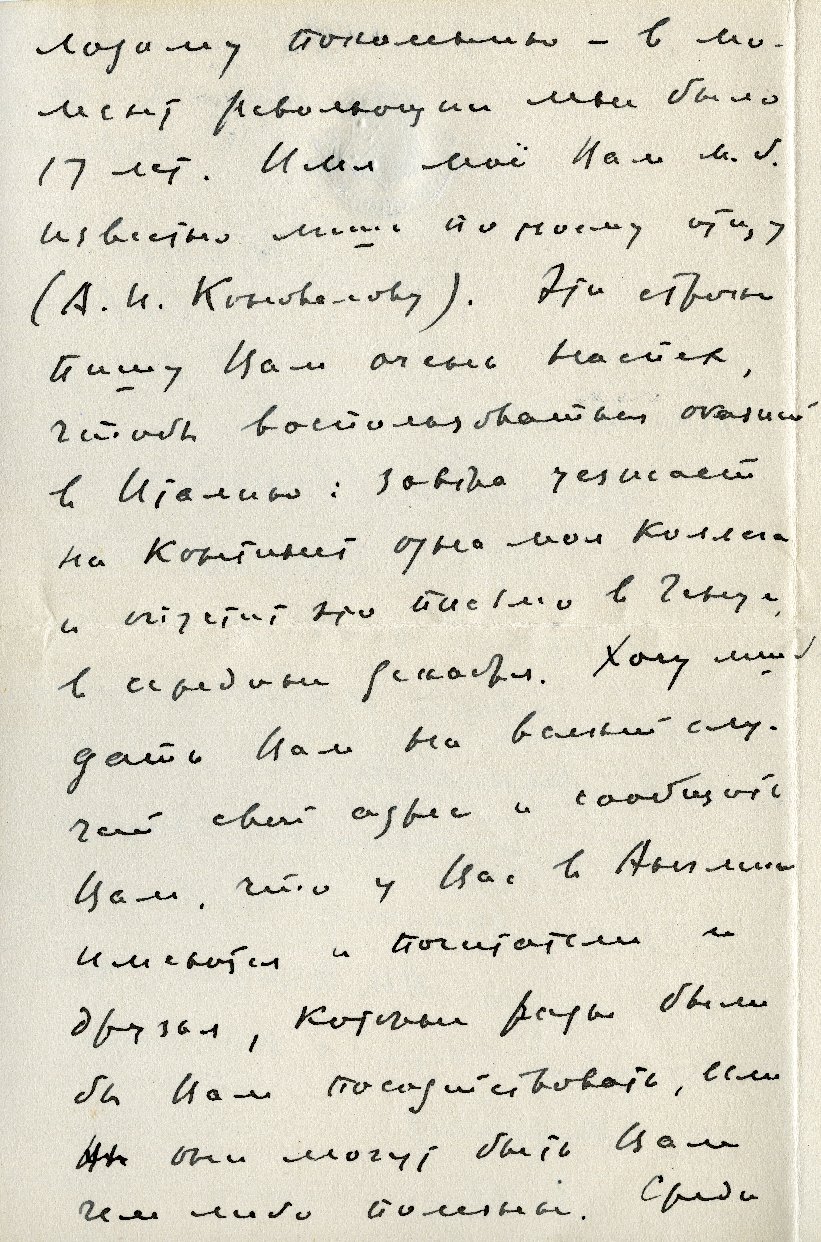 лодому поколению – в мо-
мент революции мне было
17 лет. Имя моё Вам м.б.
известно лишь по моему отцу
(А. И. Коновалову). Эти строки
пишу Вам очень наспех,
чтобы воспользоваться оказией
в Италию: завтра уезжает
на Континент одна моя коллега
и опустит это письмо в Генуе,
в середине декабря. Хочу лишь
дать Вам на всякий слу-
чай свой адрес и сообщить
Вам, что у Вас в Англии
имеются и почитатели и
друзья, которые рады были
бы Вам посодействовать, если
они могут быть Вам
чем либо полезны. Среди